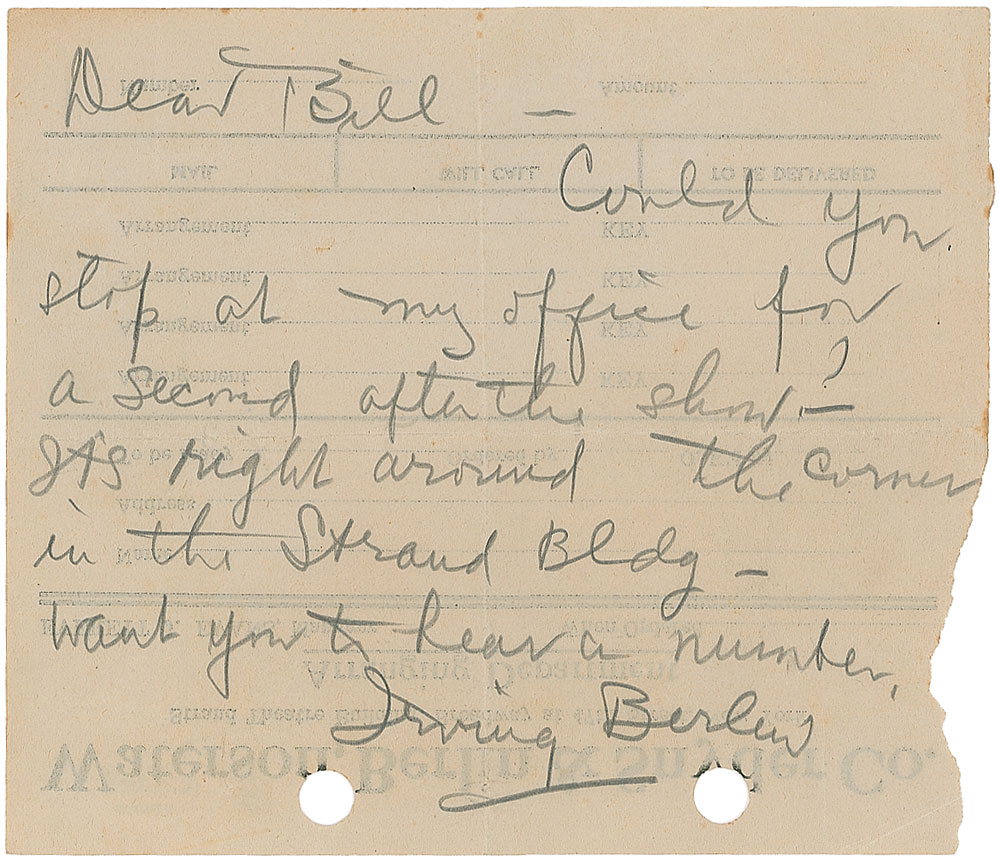 Dear Bill —
Could you
stop at my office for
a second after the show—?
Its right around the corner
in the Strand Bldg —
want you to hear a number.
Irving Berlin
Number Amount
MAIL WILL CALL TO BE DELIVERED
Arrangement KEY
Arrangement KEY
Arrangement KEY
Arrangement KEY
To be ready Ordered by
Address
Name
When Ordered
Arranging Department
Strand Theatre Broadway at
Waterson, Berlin & Snyder Co.